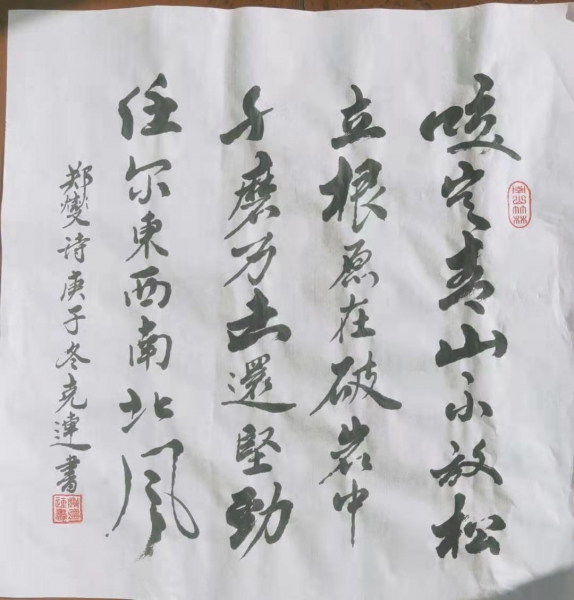 咬定青山不放松
立根愿在破岩中
千磨万击還堅勁
任尔東西南北风
郑燮诗庚子冬克連書